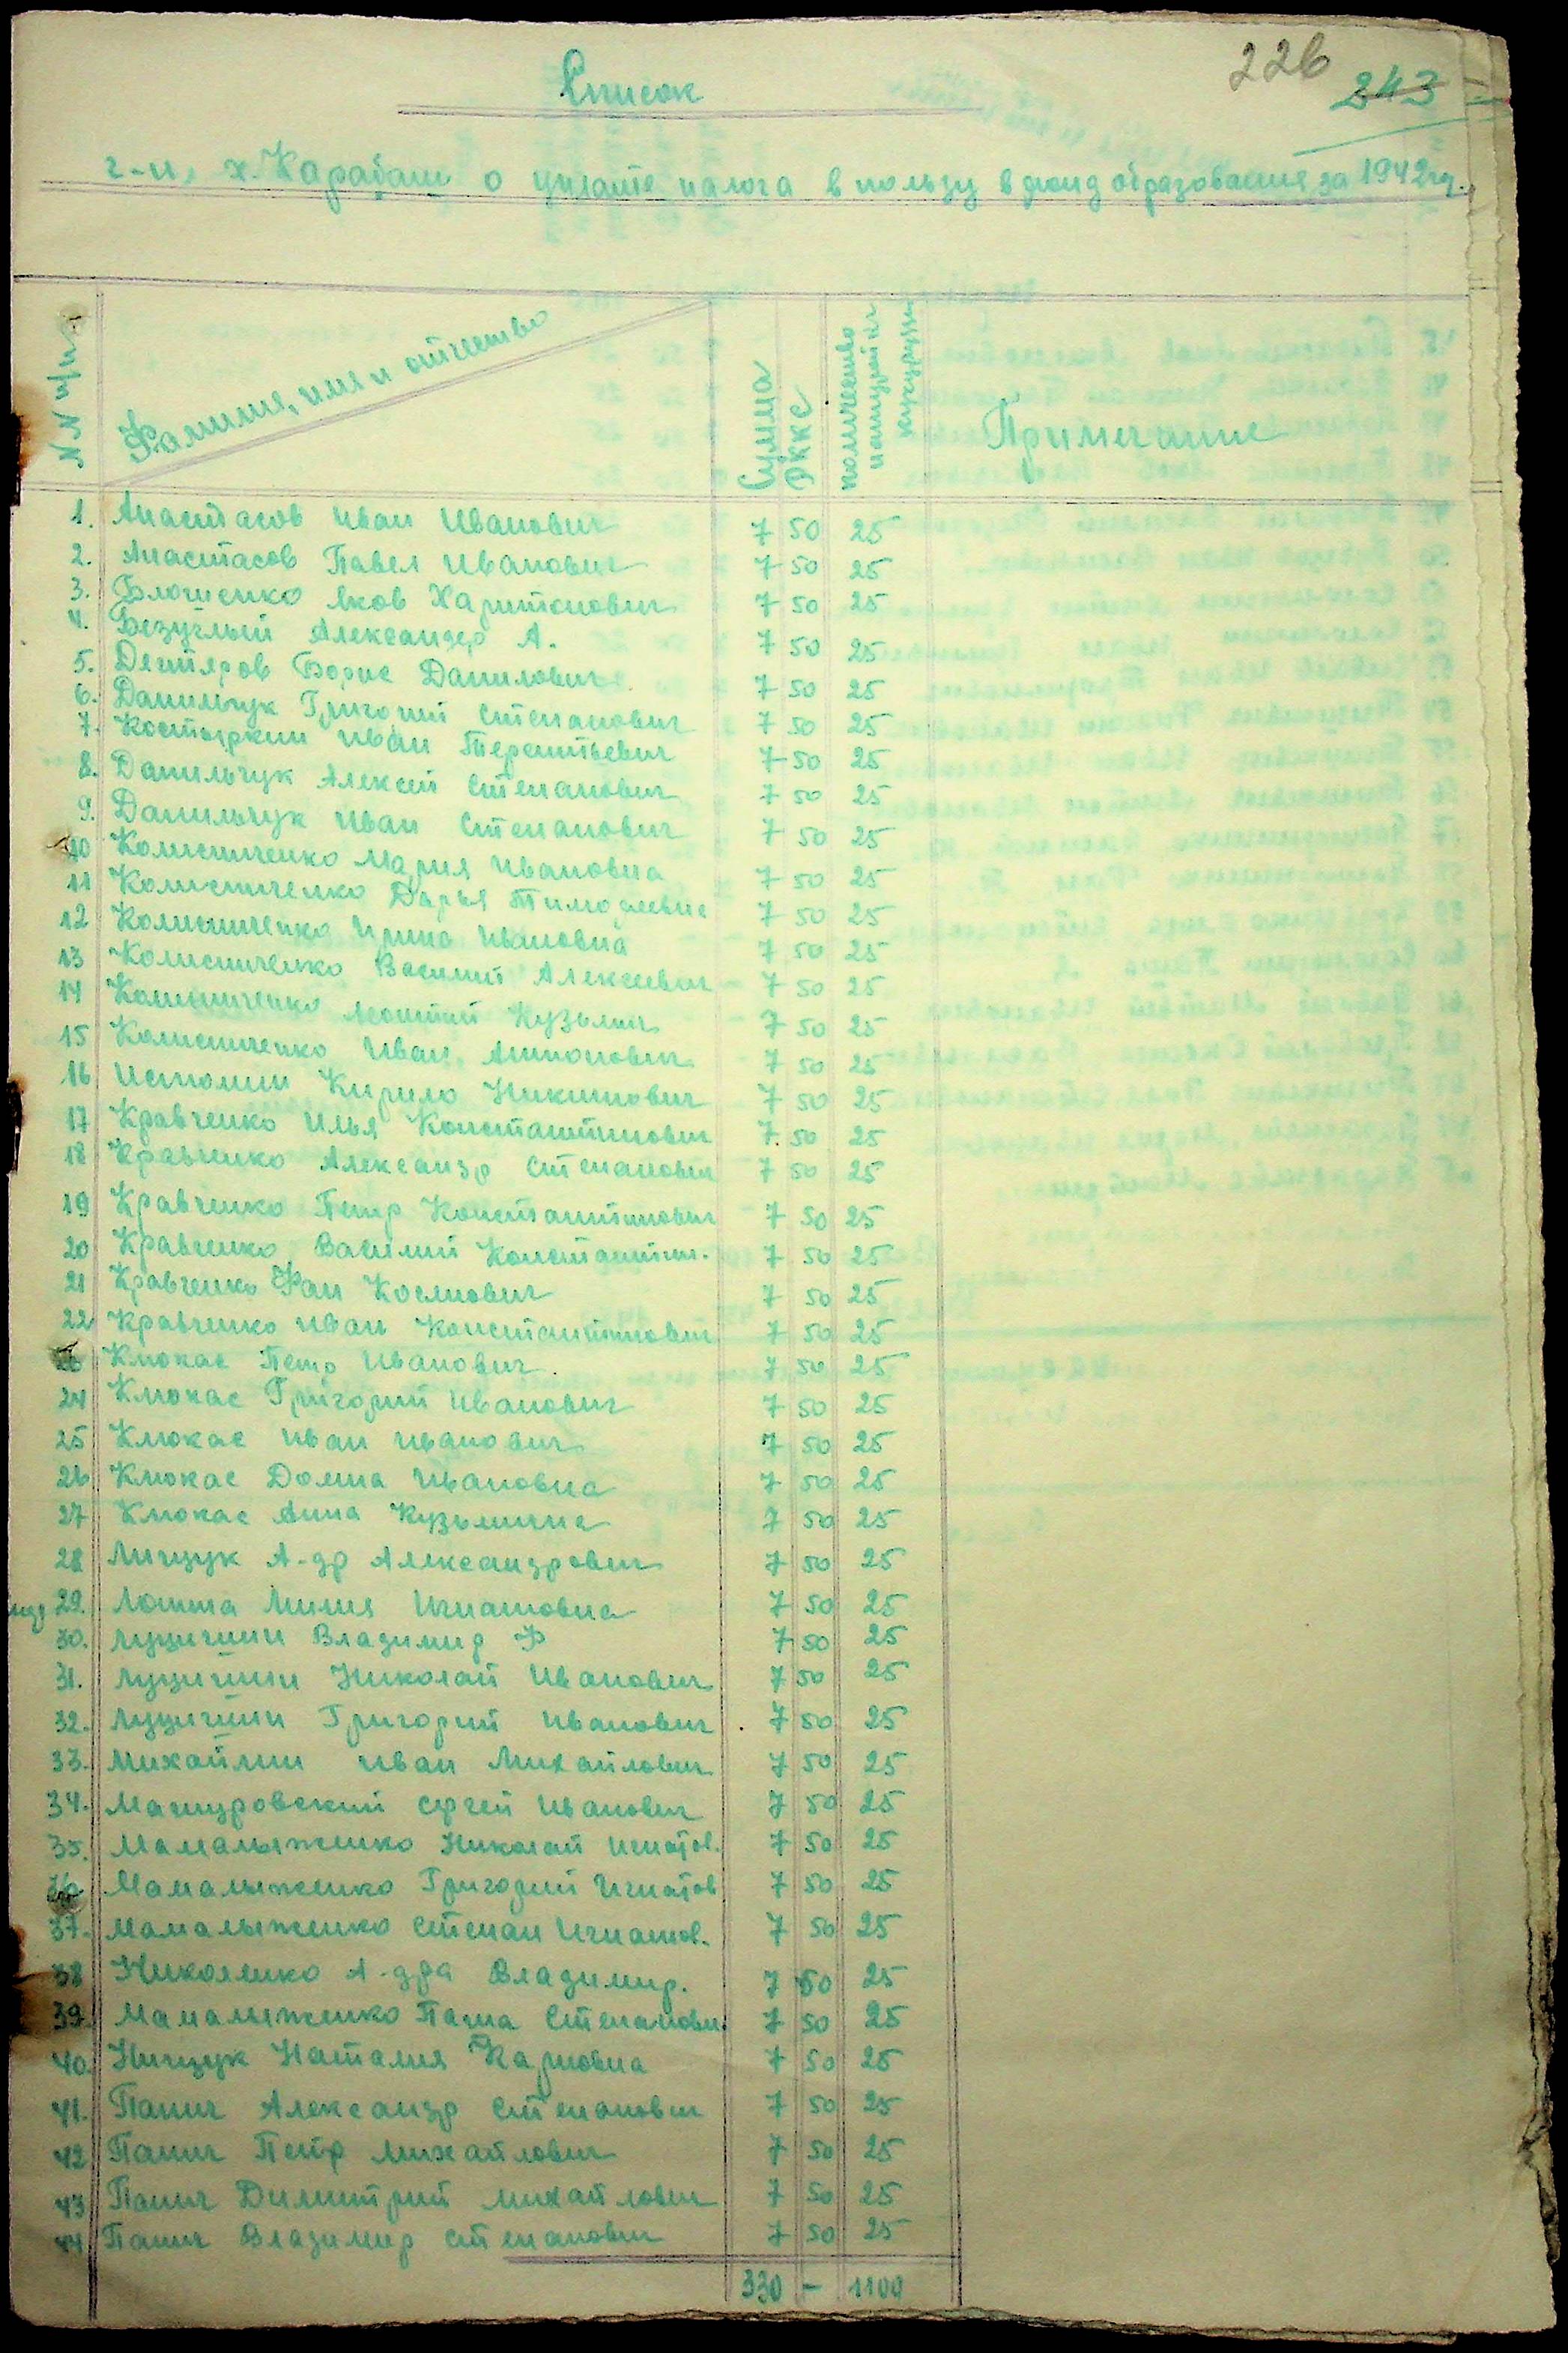 226
243
Список
г-н. х. Карабаш о уплате налога в пользу в фонд образования за 1942 г.
NN п/п Фамилия, имя и отчество Сумма ркке количество натурой кг кукурузы Примечание
1. Анастасов Иван Иванович 7 50 25
2. Анастасов Павел Иванович 7 50 25
3. Блошенко Яков Харитонович 7 50 25
4. Безуглый Александер А. 7 50 25
5. Дегтяров Борис Данилович 7 50 25
6. Данильчук Григорий Степанович 7 50 25
7. Костыркин Иван Терентьевич 7 50 25
8. Данильчук Алексей Степанович 7 50 25
9. Данильчук Иван Степанович 7 50 25
10 Колисниченко Мария Ивановна 7 50 25
11 Колисниченко Дарья Тимофеевна 7 50 25
12 Колисниченко Ирина Ивановна 7 50 25
13 Колисниченко Василий Алексеевич 7 50 25
14 Колисниченко Леонтий Кузьмич 7 50 25
15 Колисниченко Иван Антонович 7 50 25
16 Истомин Кирило Никитович 7 50 25
17 Кравченко Илья Константинович 7 50 25
18 Кравченко Александр Степанович 7 50 25
19 Кравченко Петр Константинович 7 50 25
20 Кравченко Василий Константин. 7 50 25
21 Кравченко Фан Космович 7 50 25
22 Кравченко Иван Константинович 7 50 25
Клюкас Петр Иванович 7 50 25
24 Клюкас Григорий Иванович 7 50 25
25 Клюкас Иван Иванович 7 50 25
26 Клюкас Домна Ивановна 7 50 25
27 Клюкас Анна Кузьминична 7 50 25
28 Лищук А-др Александрович 7 50 25
29. Лотта Лилия Игнатовна 7 50 25
30. Луцишин Владимир Ф 7 50 25
31. Луцишин Николай Иванович 7 50 25
32. Луцишин Григорий Иванович 7 50 25
33. Михайлин Иван Михайлович 7 50 25
34. Мачуровский Сергей Иванович 7 50 25
35. Мамалыженко Николай Игнатов. 7 50 25
36 Мамалыженко Григорий Игнатов 7 50 25
37. Мамалыженко Степан Игнатов. 7 50 25
38 Николенко А-дра Владимир. 7 50 25
39. Мамалыженко Паша Степановн. 7 50 25
40. Нищук Наталия Карповна 7 50 25
41. Папич Александр Степанович 7 50 25
42 Папич Петр Михайлович 7 50 25
43 Папич Димитрий Михайлович 7 50 25
44 Папич Владимир Степанович 7 50 25
330 - 1100